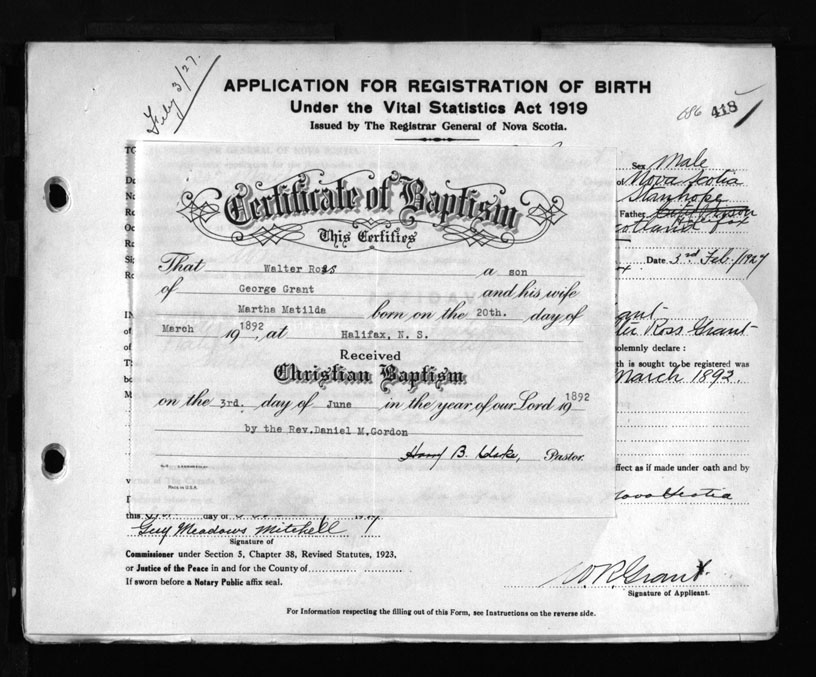 Feby 3/27.
APPLICATION FOR REGISTRATION OF BIRTH
Under the Vital Statistics Act 1919
Issued by The Registrar General of Nova Scotia.
686 418
Sex Male
of Nova Scotia
Stanhope
Father
Scotland
Date 3rd Feb./1927
Certificate of Baptism
This Certifies
That Walter Ross a son
of George Grant and his wife
Martha Matilda born on the 20th. day of
March 19 1892 at Halifax, N. S.
Received
Christian Baptism
on the 3rd. day of June in the year of our Lord 19 1892
by the Rev.Daniel M.Gordon
Harry B. Clarke, Pastor.
MADE IN U.S.A.
Ross Grant
solemnly declare :
th is sought to be registered was
March 1892.
ffect as if made under oath and by
Nova Scotia
this day of
Guy Meadows Mitchell
Signature of
Commissioner under Section 5, Chapter 38, Revised Statutes, 1923,
or Justice of the Peace in and for the County of
If sworn before a Notary Public affix seal.
W. R. Grant.
Signature of Applicant.
For Information respecting the filling out of this Form, see Instructions on the reverse side.